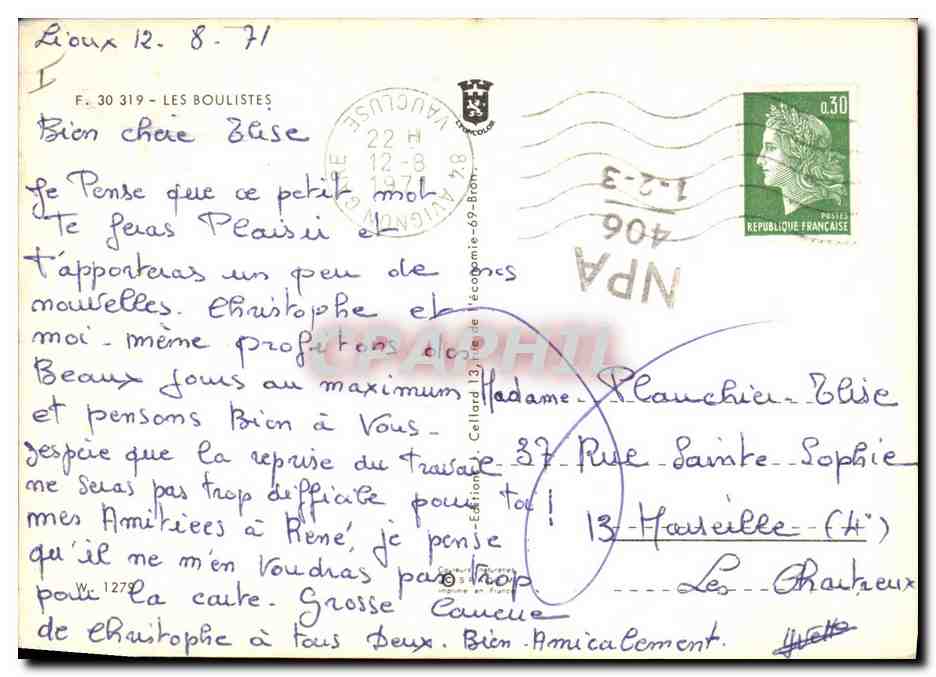 Lioux 12. 8. 71
I
F. 30 319 - LES BOULISTES
Bien chère Elise
Je Pense que ce petit mot
Te feras Plaisir et
t'apporteras un peu de mes
nouvelles. Christophe et
moi-même profitons des
Beaux jours au maximum
et pensons Bien à Vous.
J'espère que la reprise du travail
ne seras pas trop difficile pour toi!
mes Amitiées à René, je pense
qu'il ne m'en Voudras pas trop
pour la carte. Grosse
de Christophe à tous Deux. Bien Amicalement.
Yvette
W. 1279
LYONCOLOR
84 AVIGNON GARE
VAUCLUSE
22 H
12-8
1971
NPA
406
1-2-3
0,30
POSTES
REPUBLIQUE FRANÇAISE
Editions Cellard 13, rue de l'économie-69-Bron.
Couleurs naturelles
imprimé en France
CPAPHIL
Madame Planchier Elise
37 Rue Sainte Sophie
13 Marseille (4°)
Les Chartreux